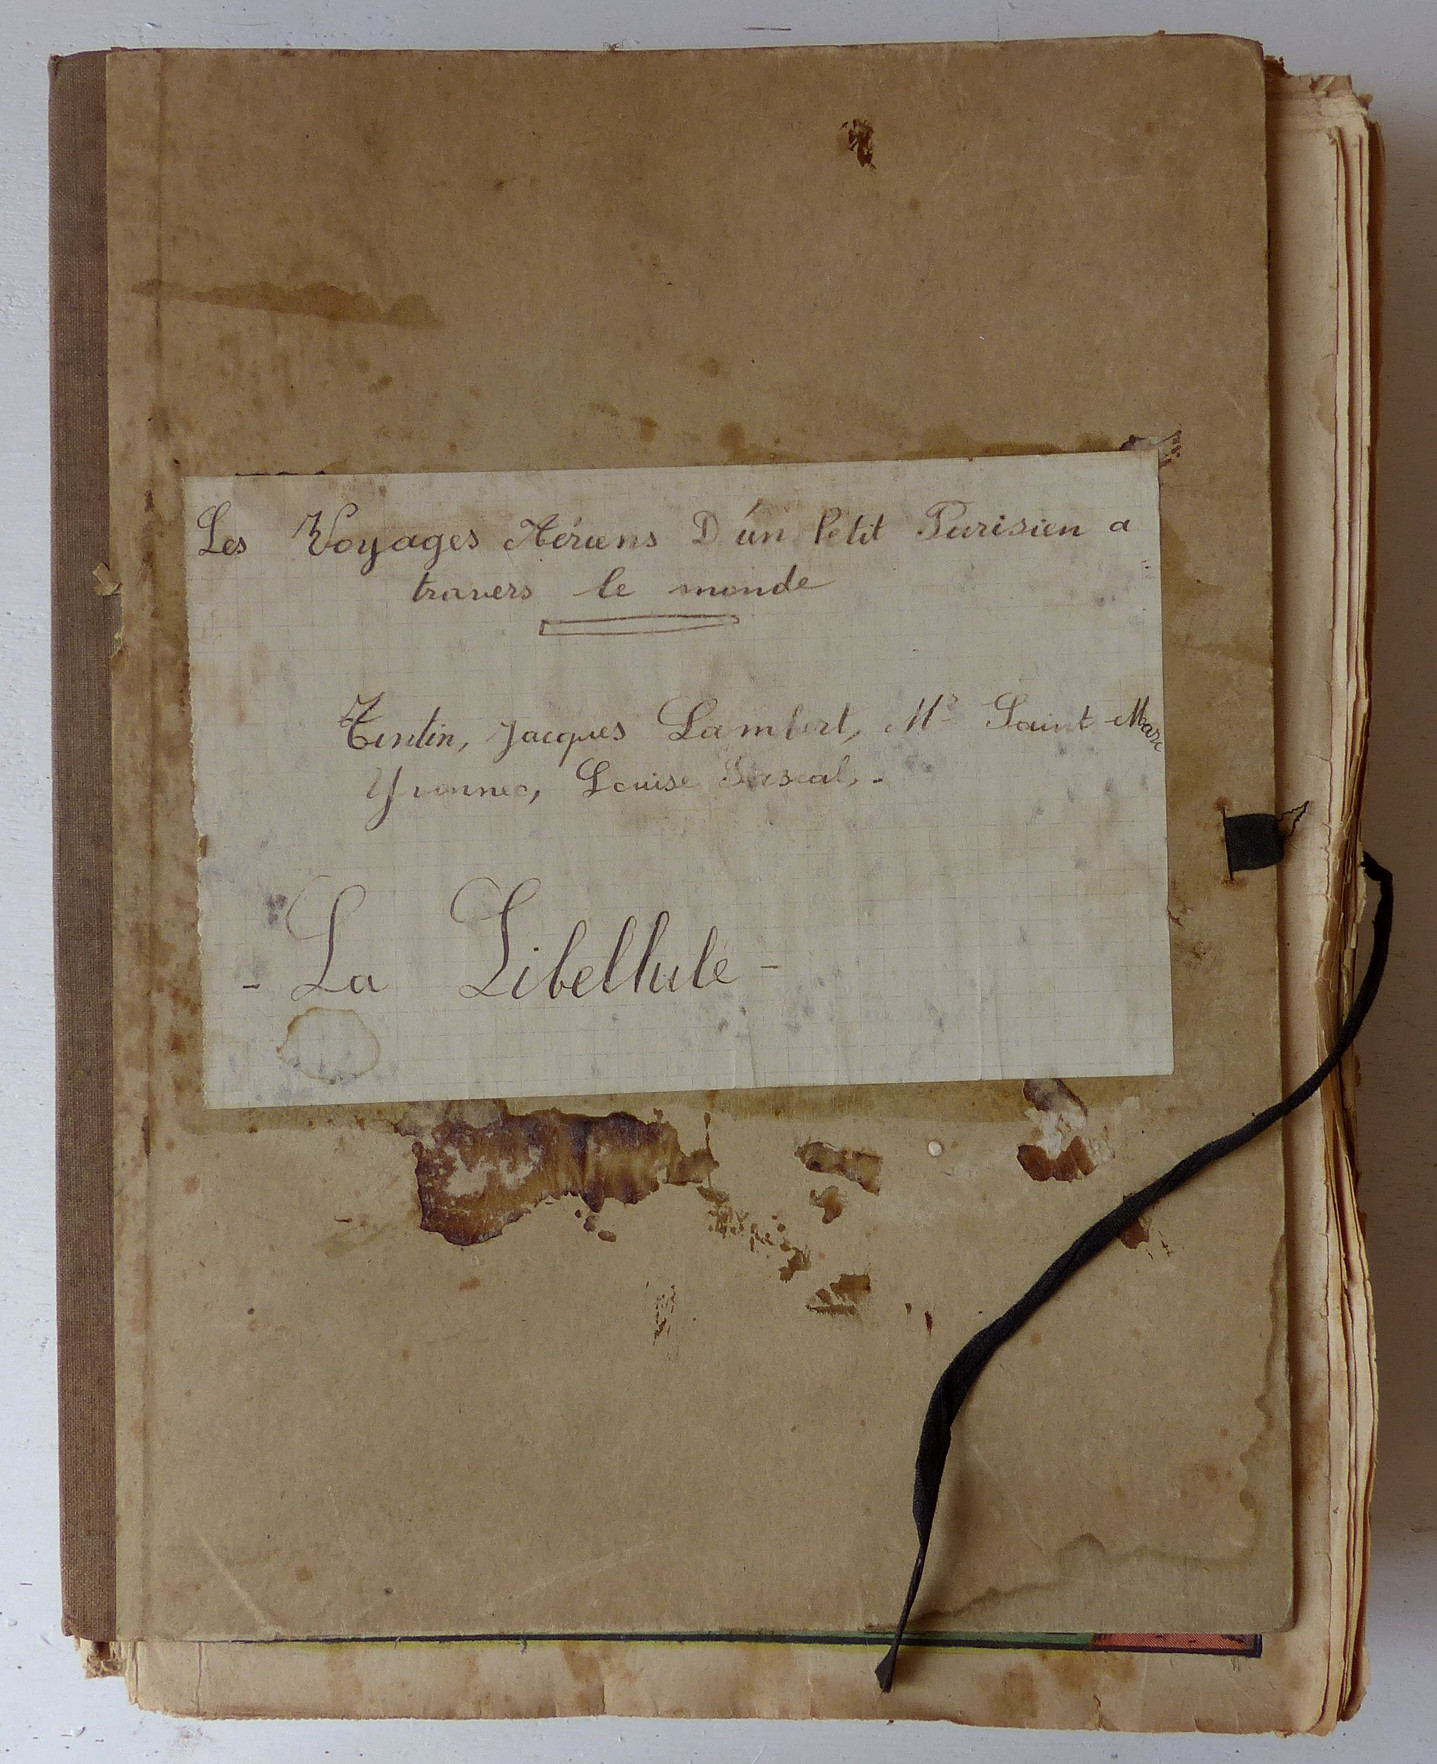 Les Voyages Aériens D'un Petit Parisien a
travers le monde
Tintin, Jacques Lambert, Mr Saint-Marc
Yvonnec, Louise Pascal, -
- La Libellule -